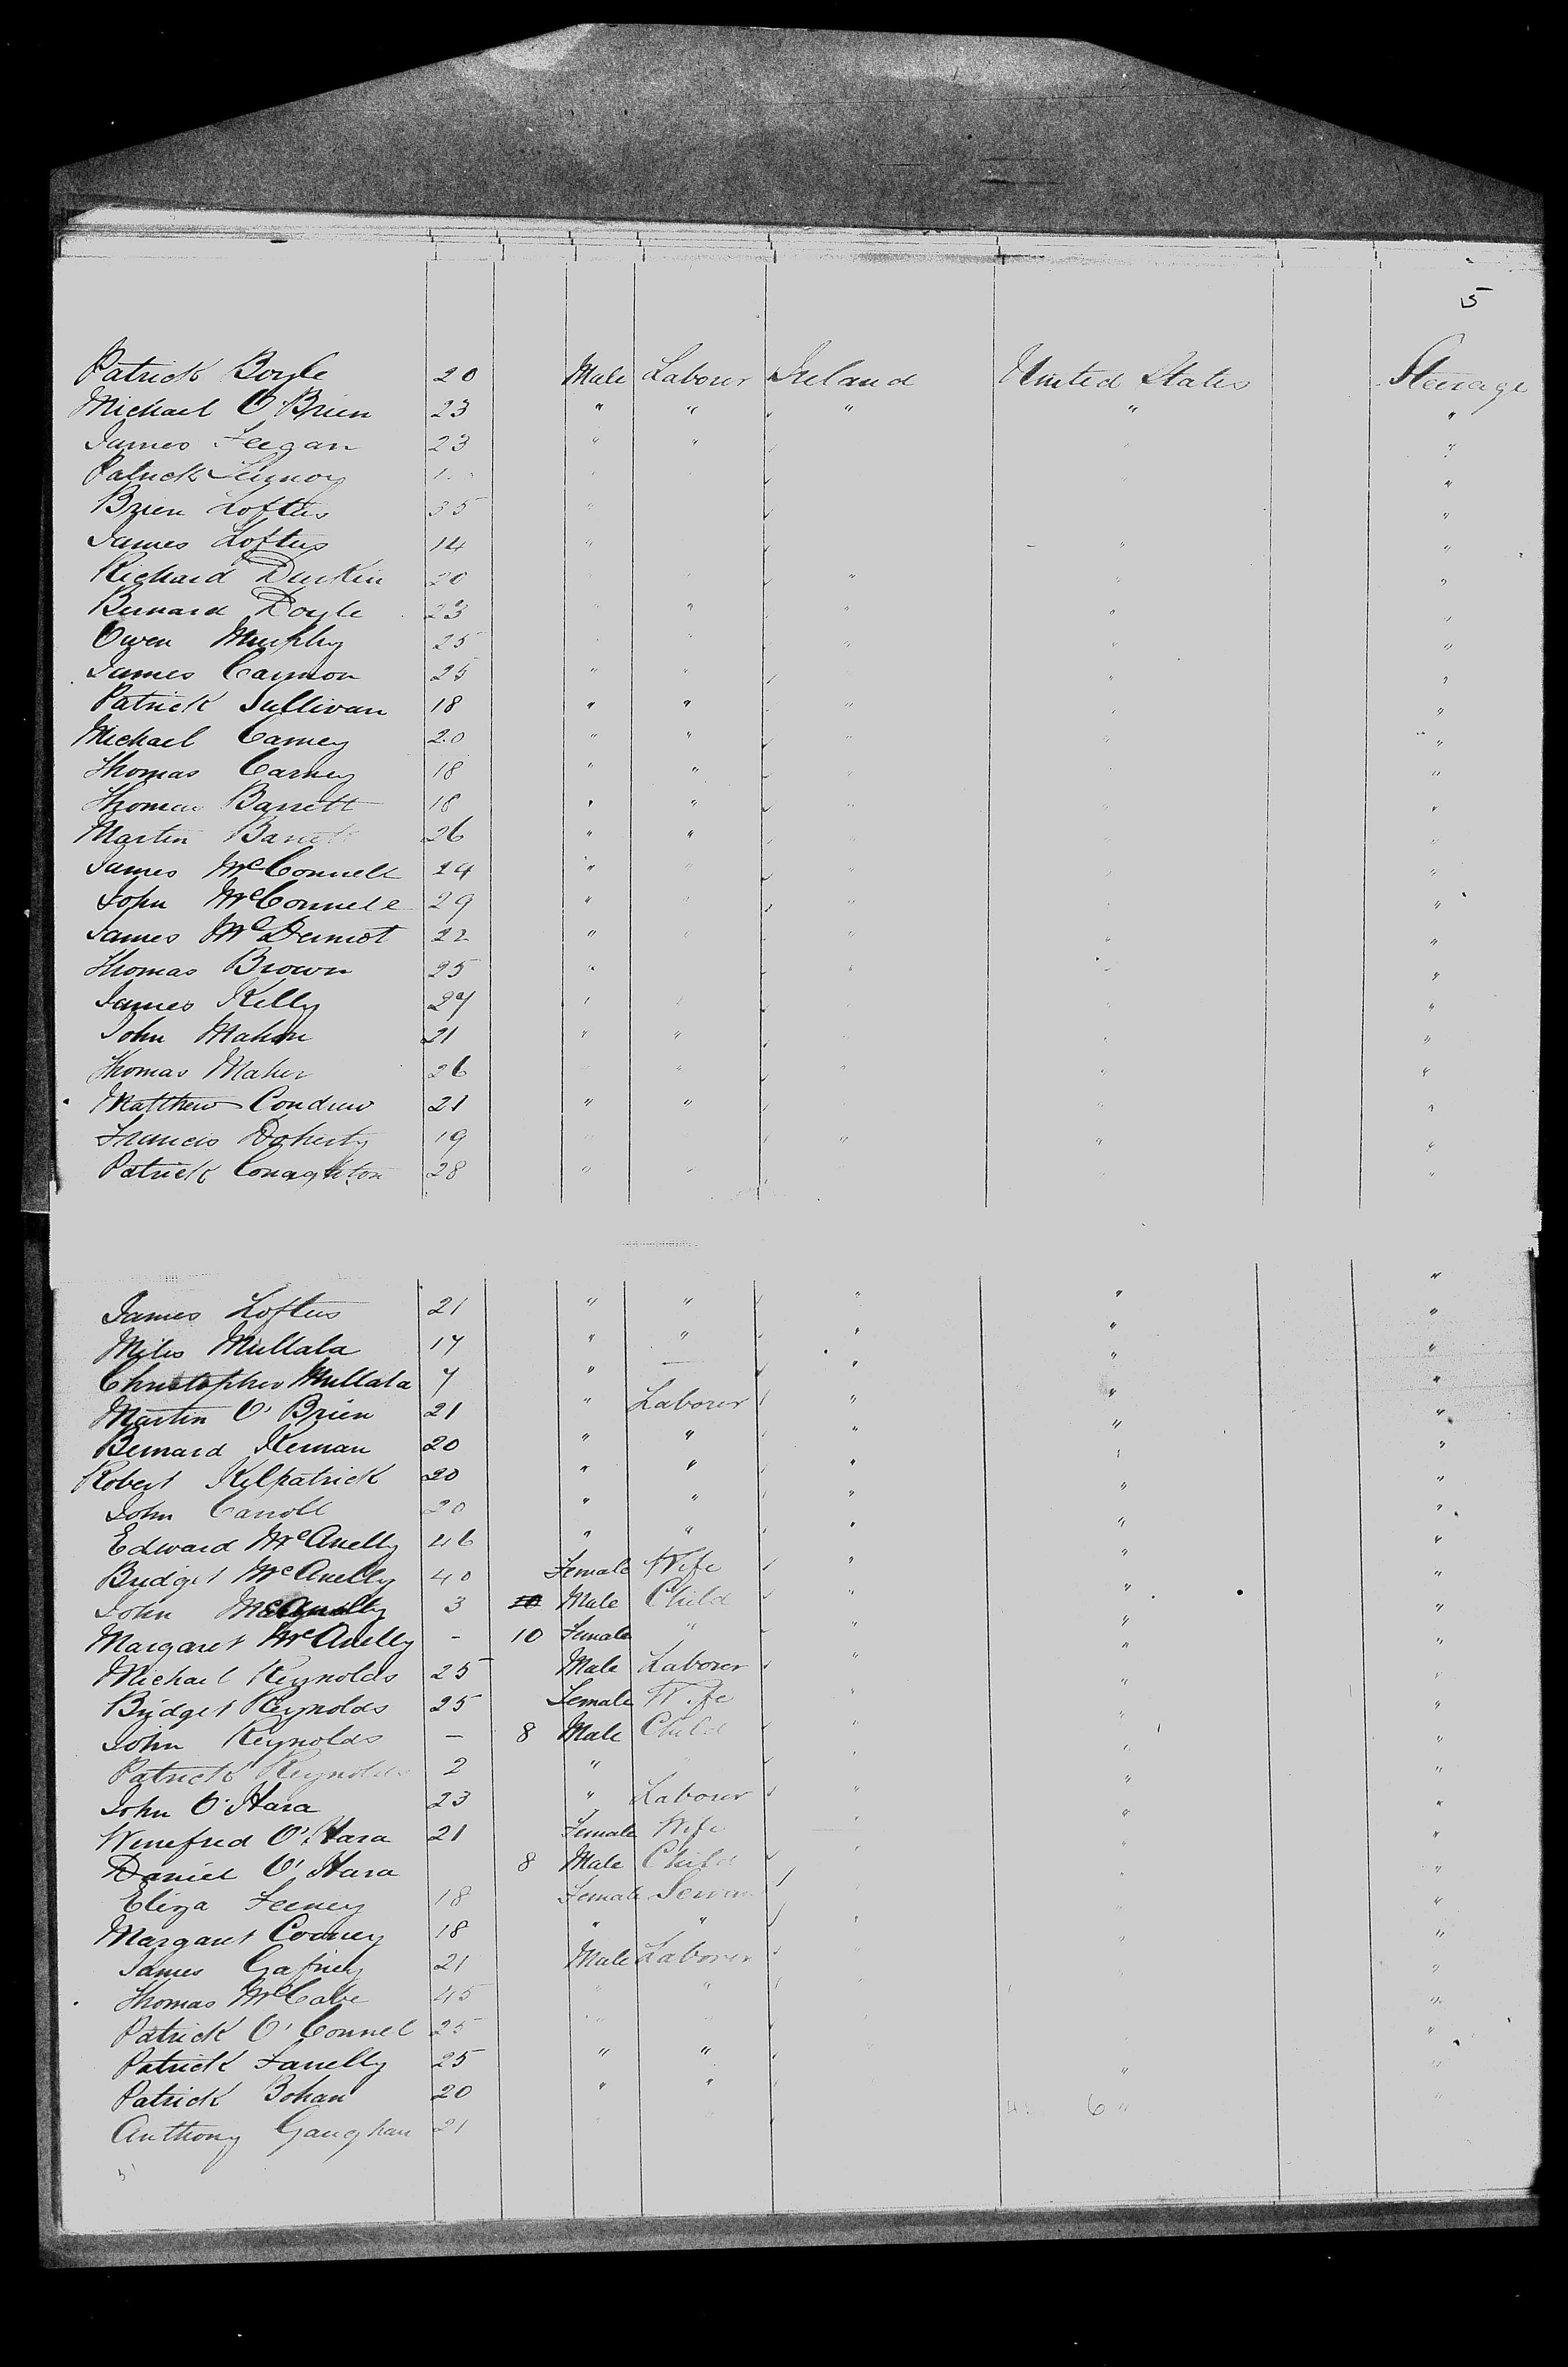 5
Patrick Boyle 20 Male Laborer Ireland United States Steerage
Michael O'Brien 23 " " " " "
James Feegan 23 " " "
Patrick "
Brien Loftus 35 " "
James Loftus 14 " " "
Richard Durkin 20 " " " "
Bernard Doyle 23 " " " " "
Owen Murphy 25 " " " "
James Cannon 25 " " " "
Patrick Sullivan 18 " " " "
Michael Carney 20 " " " "
Thomas Carney 18 " " "
Thomas Barrett 18 " " "
Martin Barrett 26 " "
James McConnell 24 " "
John McConnell 29 " " "
James McDermot 22 " " "
Thomas Brown 25 " "
James Kelly 27 " "
John Mahon 21 " " "
Thomas Maher 26 " " "
Matthew Condrew 21 " " "
Francis Doherty 19 " " "
Patrick Conaghton 28 " "
"
James Loftus 21 " " " " "
Miles Mullala 17 " " " "
Christopher Mullala 7 " — " " "
Martin O'Brien 21 " Laborer " " "
Bernard Kernan 20 " " " " "
Robert Kilpatrick 20 " " " "
John Carroll 20 " " " "
Edward McAnelly 46 " " " " "
Bridget McAnelly 40 Female Wife " " "
John McAnelly 3 10 Male Child " " "
Margaret McAnelly - 10 Female " " " "
Michael Reynolds 25 Male Laborer " " "
Bridget Reynolds 25 Female Wife " " "
John Reynolds — 8 Male Child " " "
Patrick Reynolds 2 " " "
John O'Hara 23 " Laborer " " "
Winefred O'Hara 21 Female Wife " "
Daniel O'Hara 8 Male Child " " "
Eliza Feeney 18 Female Servant "
Margaret Cooney 18 " " " "
James Gafney 21 Male Laborer "
Thomas McCabe 45 " " "
Patrick O'Connel 25 " "
Patrick Fanelly 25 " " " "
Patrick Bohan 20 " " "
6 "
Anthony Gaughan 21